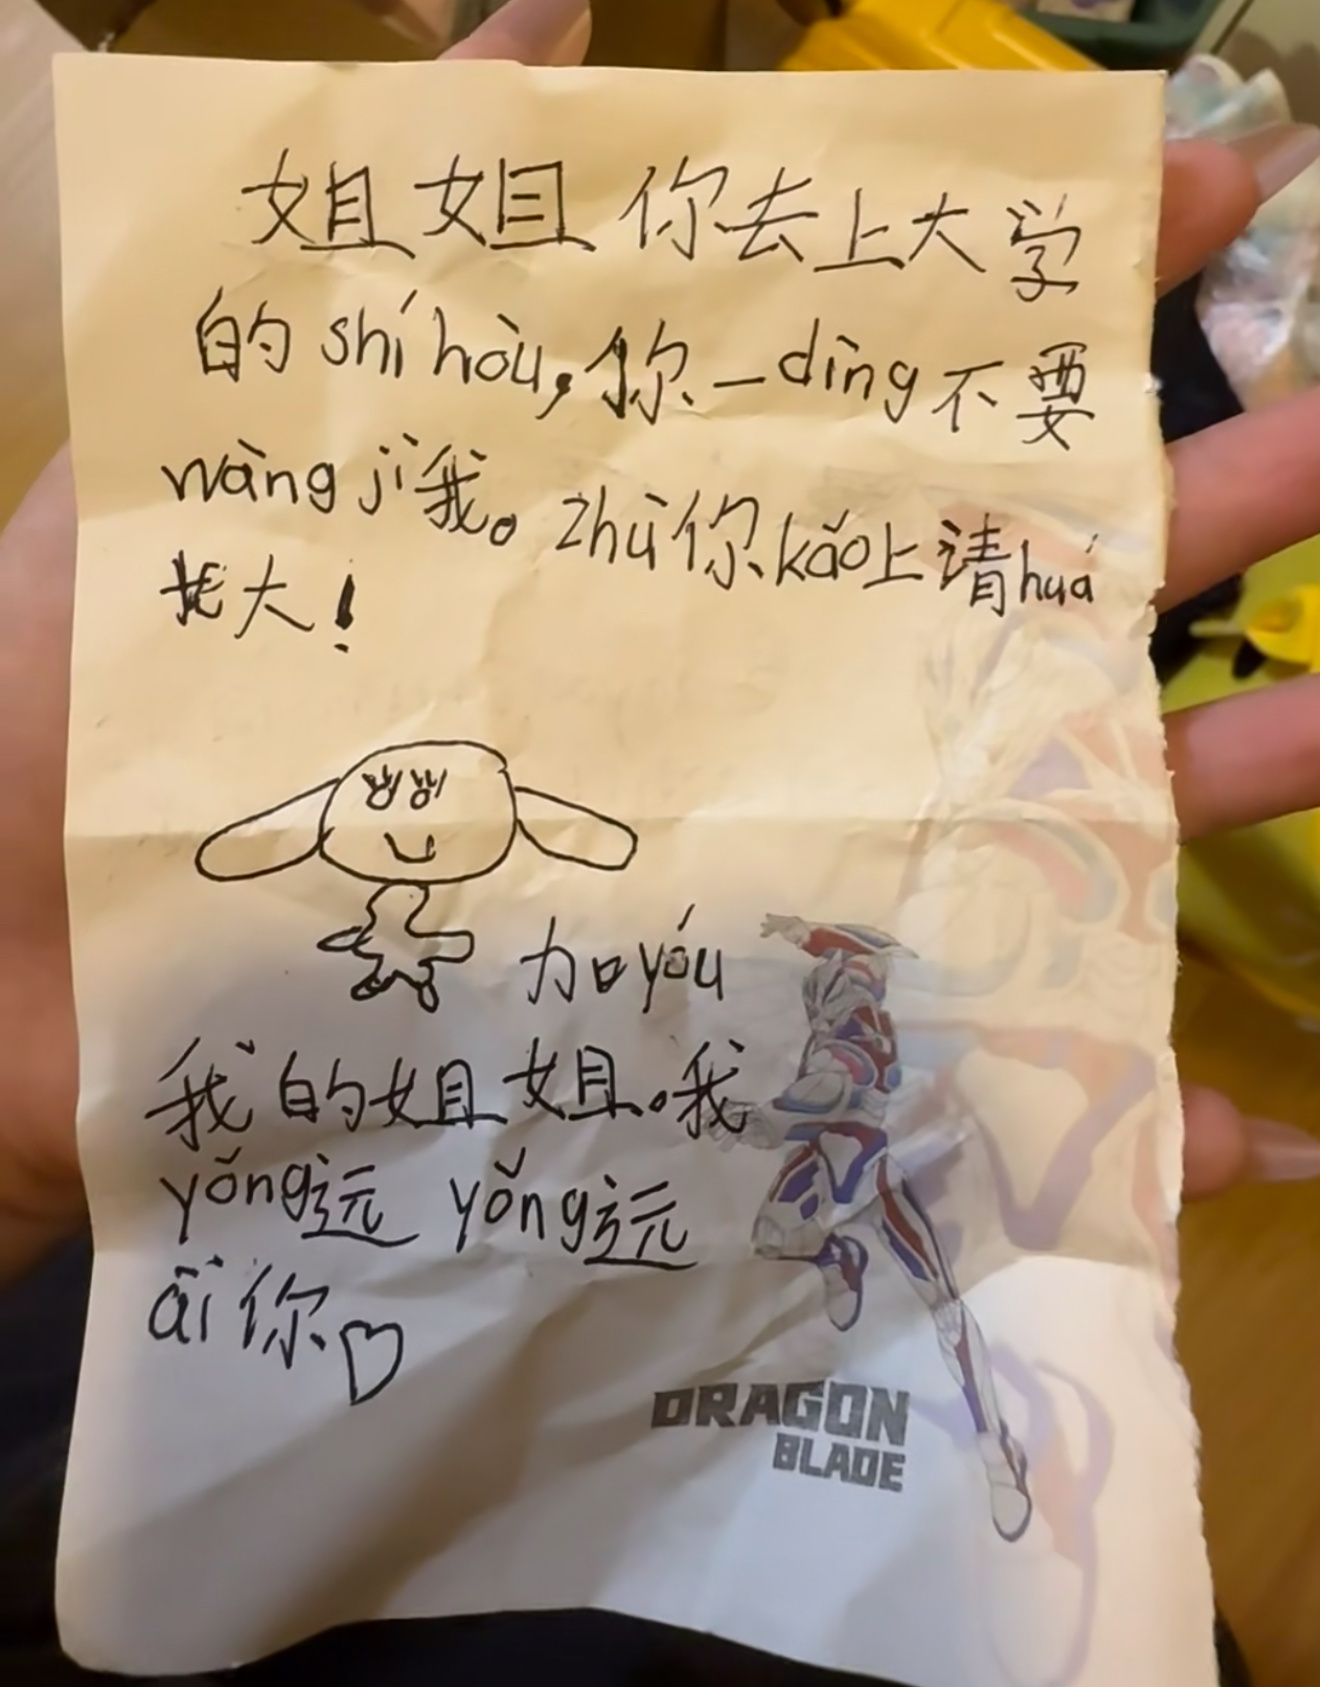 姐姐你去上大学
的shí hòu,你一dìng不要
wàng jì我。zhù你kǎo上请huá
大!
加yóu
我的姐姐。我
yǒng远 yǒng远
ài你
DRAGON
BLADE